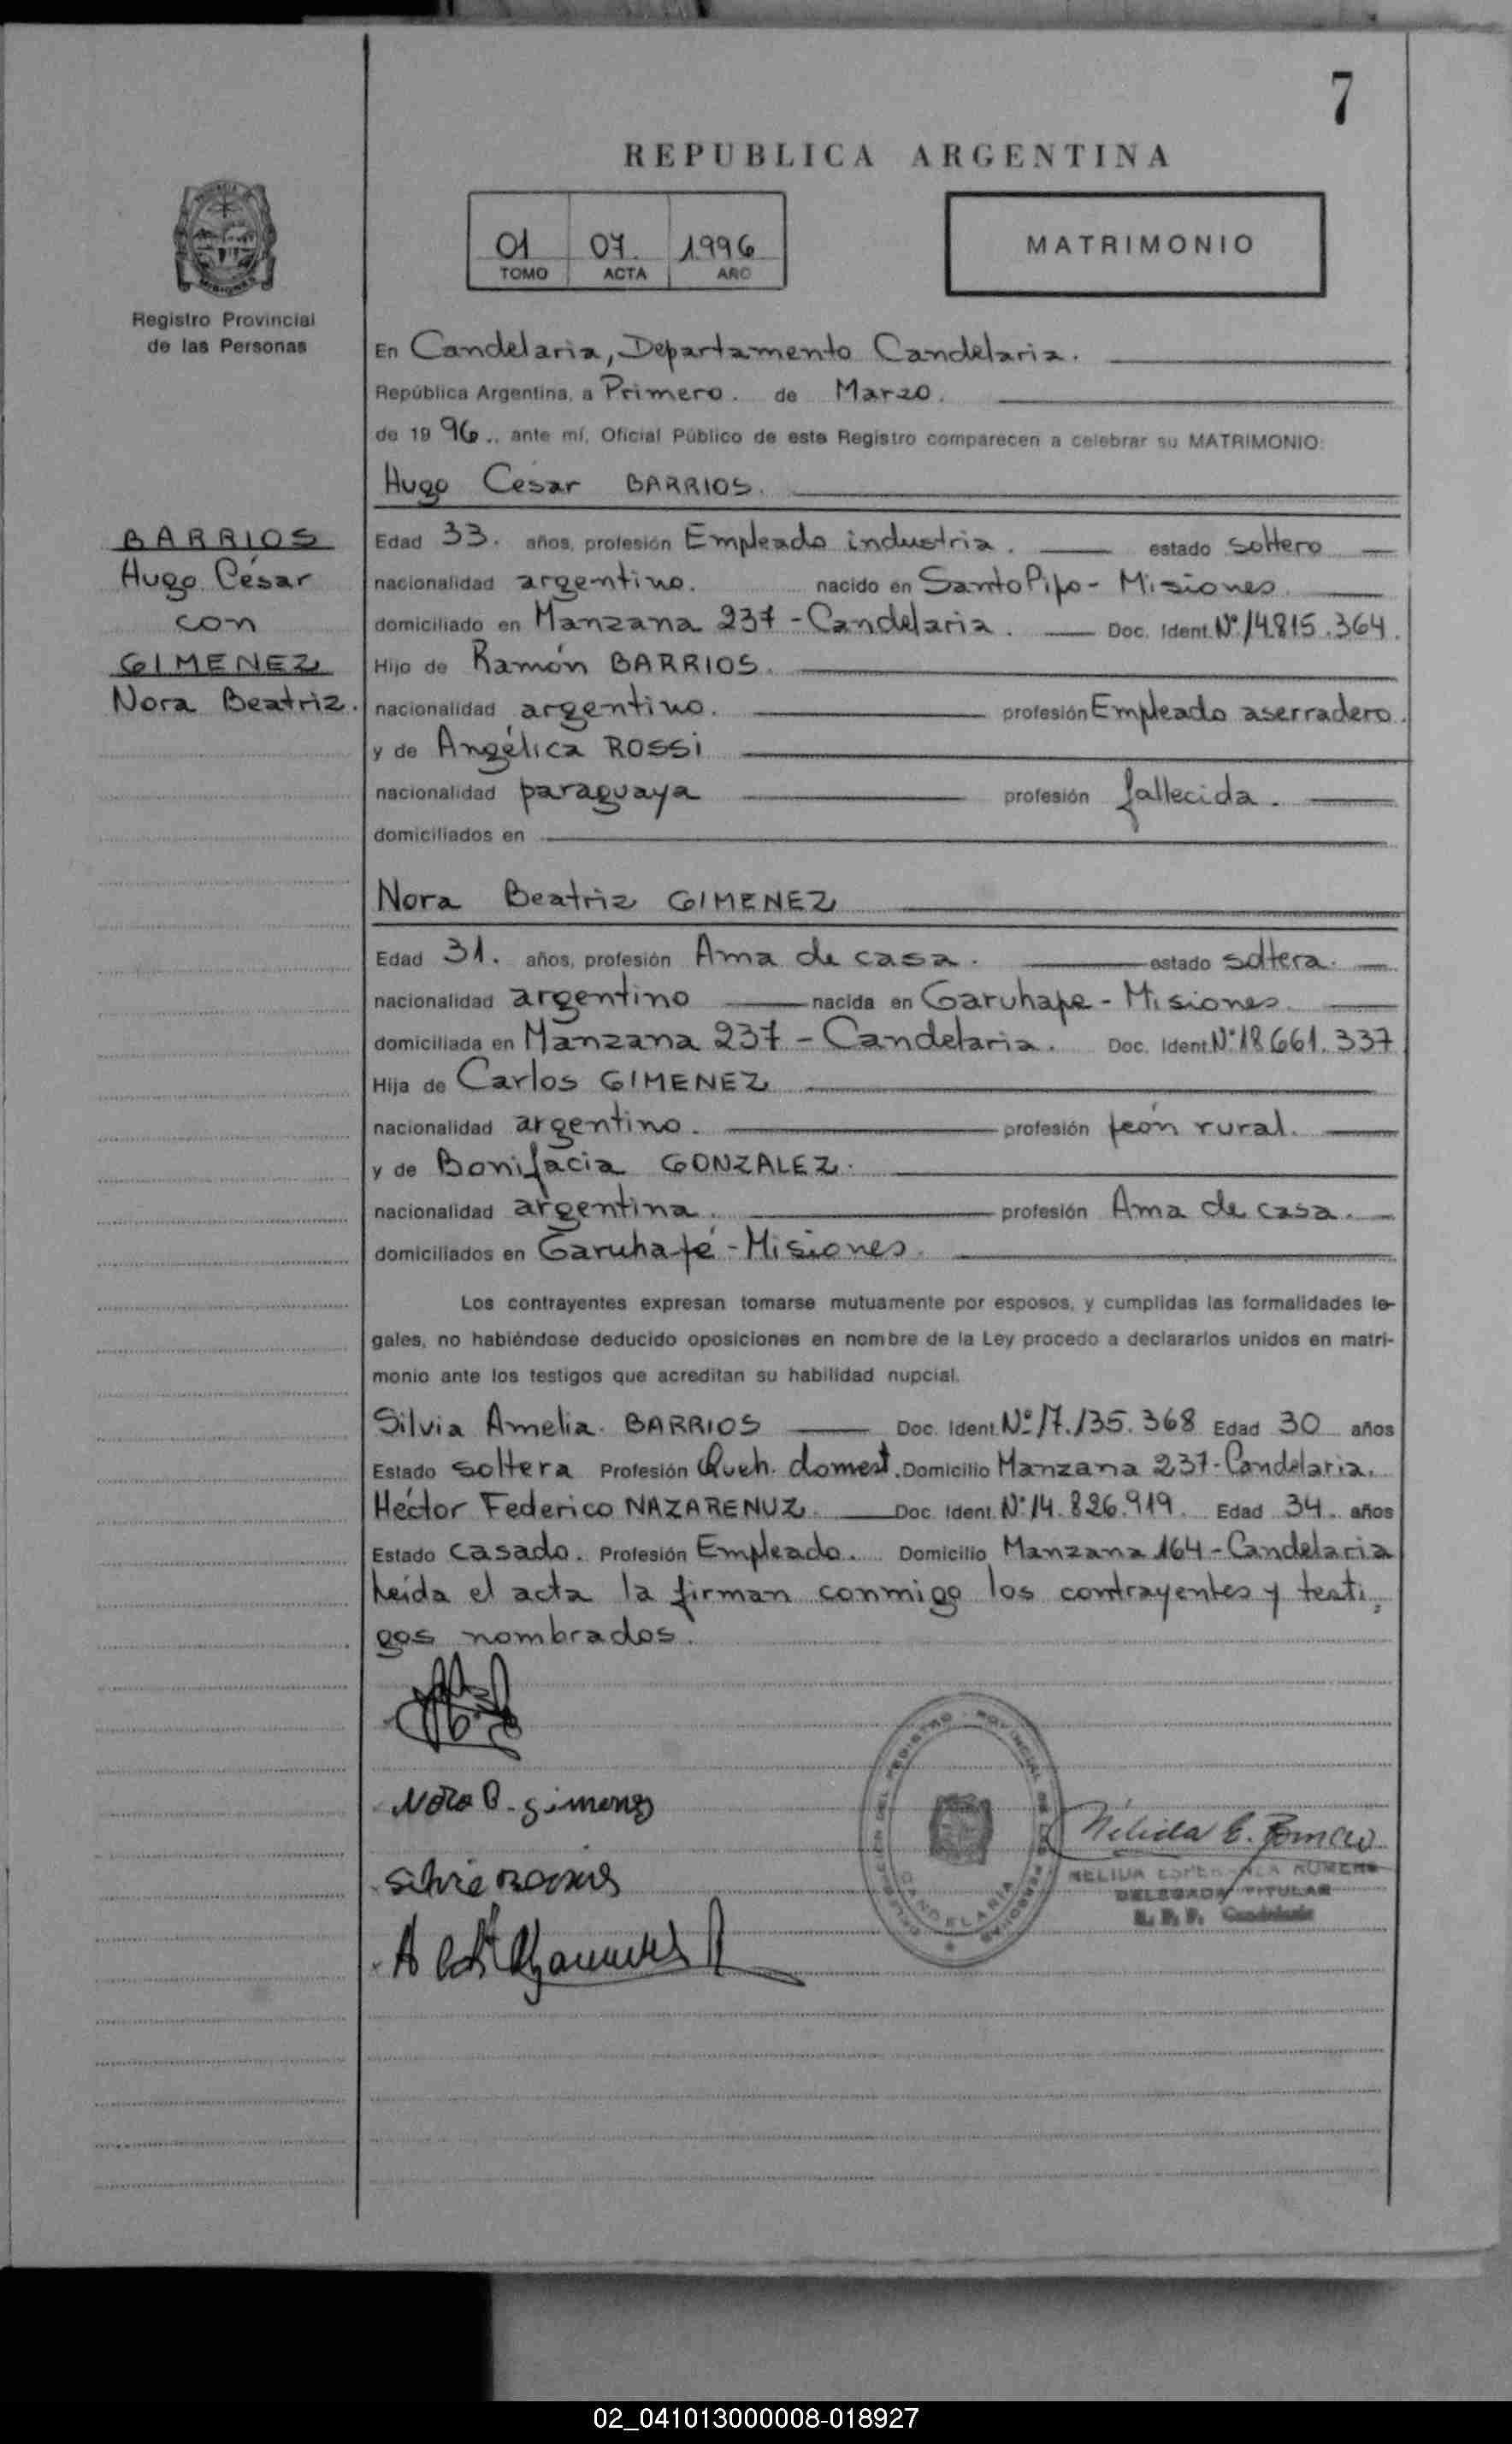 7
REPUBLICA ARGENTINA
01 07. 1996
TOMO ACTA AÑO
MATRIMONIO
Registro Provincial
de las Personas
En Candelaria, Departamento Candelaria.
República Argentina, a Primero. de Marzo.
de 19 96., ante mí, Oficial Público de este Registro comparecen a celebrar su MATRIMONIO:
Hugo César BARRIOS.
BARRIOS
Hugo César
con
GIMENEZ
Nora Beatriz.
Edad 33. años, profesión Empleado industria. estado soltero
nacionalidad argentino. nacido en Santo Pipo - Misiones.
domiciliado en Manzana 237 - Candelaria. Doc. Ident. Nº 14.815.364.
Hijo de Ramón BARRIOS.
nacionalidad argentino. profesión Empleado aserradero.
y de Angélica ROSSI
nacionalidad paraguaya profesión fallecida.
domiciliados en
Nora Beatriz GIMENEZ
Edad 31. años, profesión Ama de casa. estado soltera.
nacionalidad argentino nacida en Garuhape - Misiones.
domiciliada en Manzana 237 - Candelaria. Doc. Ident. Nº 18.661.337
Hija de Carlos GIMENEZ
nacionalidad argentino. profesión peón rural.
y de Bonifacia GONZALEZ.
nacionalidad argentina. profesión Ama de casa.
domiciliados en Garuhapé - Misiones.
Los contrayentes expresan tomarse mutuamente por esposos, y cumplidas las formalidades le-
gales, no habiéndose deducido oposiciones en nombre de la Ley procedo a declararlos unidos en matri-
monio ante los testigos que acreditan su habilidad nupcial.
Silvia Amelia. BARRIOS Doc. Ident. Nº 17.135.368 Edad 30 años
Estado soltera Profesión Queh. domest. Domicilio Manzana 237 - Candelaria.
Héctor Federico NAZARENUZ. Doc. Ident. Nº 14.826.919. Edad 34. años
Estado casado. Profesión Empleado. Domicilio Manzana 164 - Candelaria
Leída el acta la firman conmigo los contrayentes y testi-
gos nombrados.
Nora B. Gimenez
Silvia Barrios
Nélida E. Romero
NELIDA ESPERANZA ROMERO
DELEGADA TITULAR
R. P. P. Candelaria
REGISTRO PROVINCIAL DE LAS PERSONAS
CANDELARIA
02_041013000008-018927